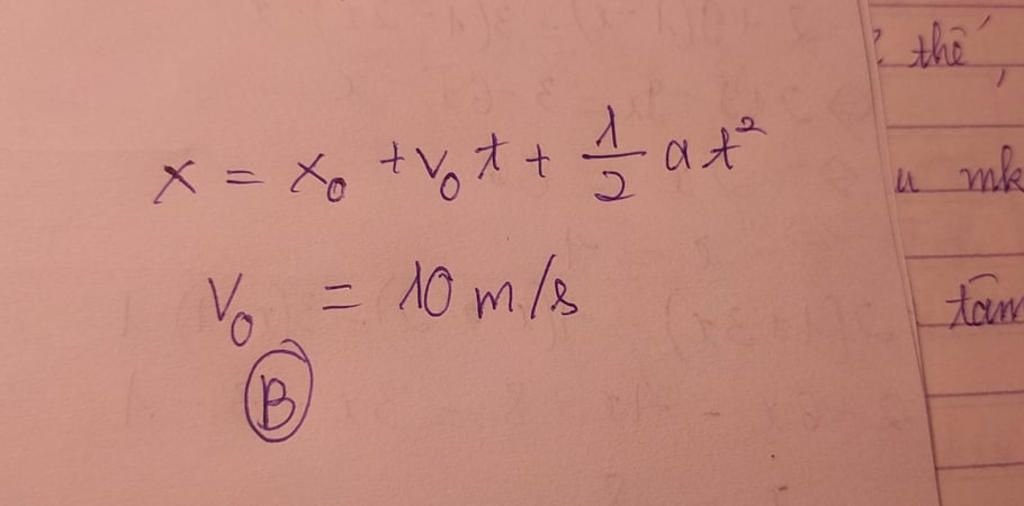 x = x₀ + v₀t + 1/2 at²
v₀ = 10 m/s
B
thế,
u mk
tâm